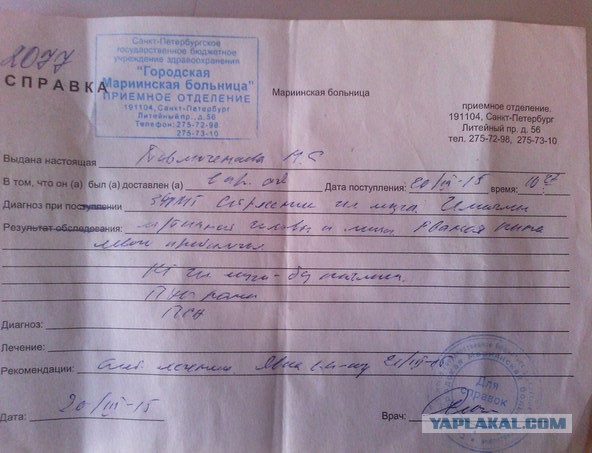 2077
Санкт-Петербургское
государственное бюджетное
учреждение здравоохранения
"Городская
Мариинская больница"
ПРИЕМНОЕ ОТДЕЛЕНИЕ
191104, Санкт-Петербург
Литейный пр., д. 56
Телефон: 275-72-98
275-73-10
СПРАВКА
Мариинская больница
приемное отделение.
191104, Санкт-Петербург
Литейный пр. д. 56
тел. 275-72-98, 275-73-10
Выдана настоящая
В том, что он (а) был (а) доставлен (а) Дата поступления: 20/III-15 время: 10
Диагноз при поступлении ЗЧМТ Сотрясение гл мозга. Ушибы
Результат обследования: головы и лица Рваная
КТ гл мозга - без патологии.
ПХО раны
ПСС
Диагноз:
Лечение:
Рекомендации: Амб лечение. Явка 21/III-15
Дата: 20/III-15 Врач:
Для
справок
YAPLAKAL.COM